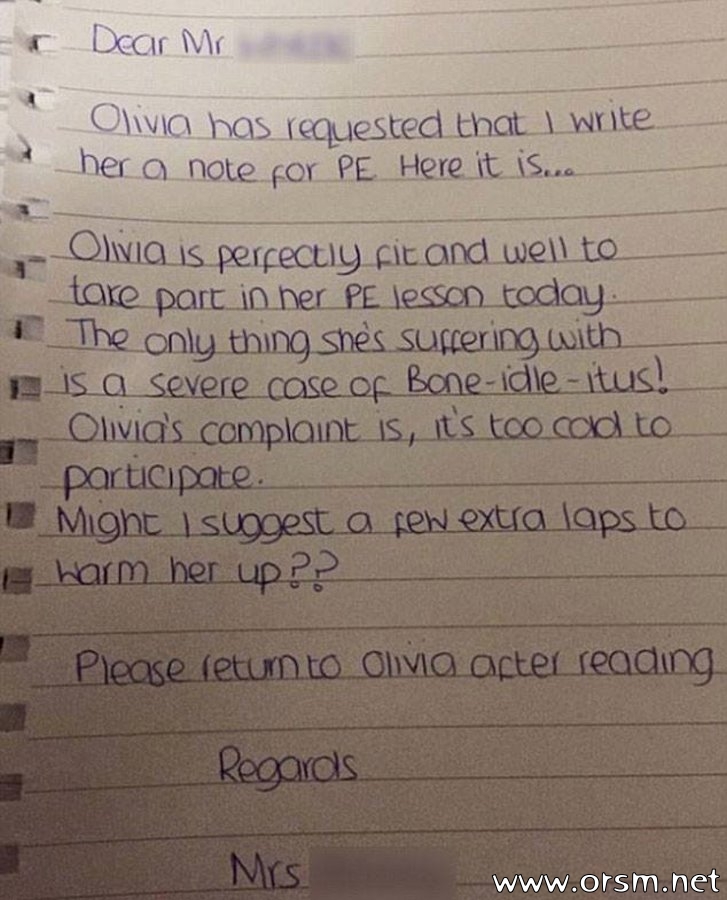 Dear Mr
Olivia has requested that I write
her a note for PE Here it is...
Olivia is perfectly fit and well to
take part in her PE lesson today.
The only thing she's suffering with
is a severe case of Bone-idle-itus!
Olivia's complaint is, it's too cold to
participate.
Might I suggest a few extra laps to
warm her up??
Please return to Olivia after reading
Regards
Mrs
www.orsm.net